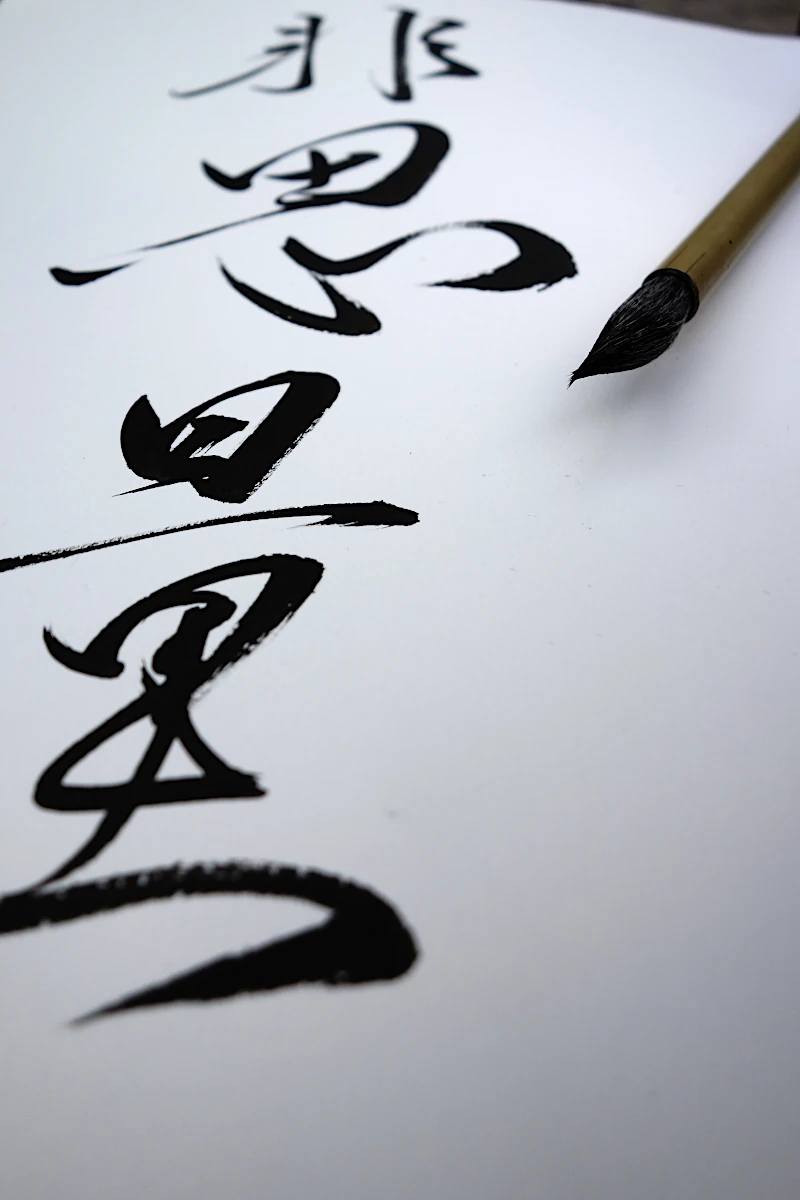 非思量